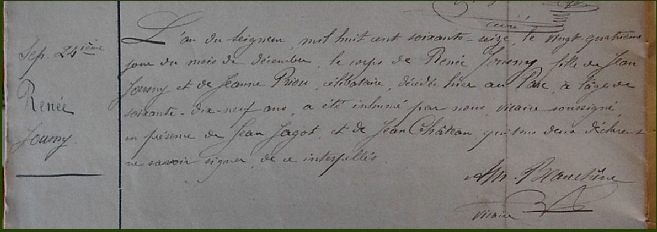 Sep. 24ième
Renée
Joumy
L'an du seigneur, mil huit cent soixante-seize, le vingt quatrième
jour du mois de décembre, le corps de Renée Joumy, fille de Jean
Joumy et de Jeanne Priou, célibataire, décédée hier au Parc, à l'age de
soixante-dix-neuf ans, a été inhumé par nous vicaire soussigné,
en présence de Jean Jagot, et de Jean Château qui tous deux déclarent
ne savoir signer, de ce interpellés.
vicaire